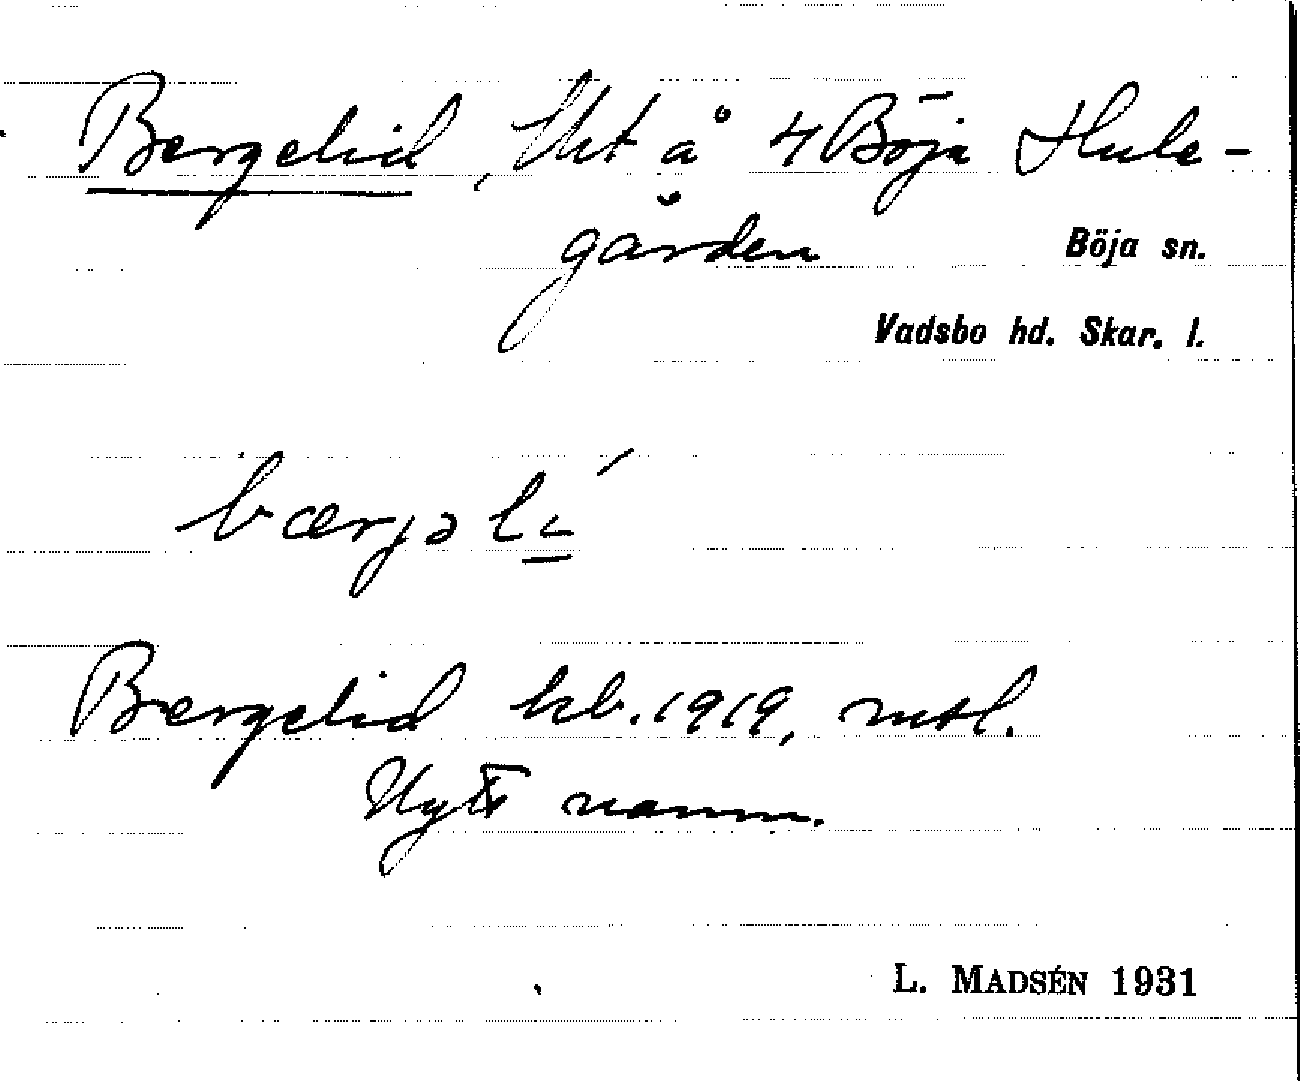 Bergelid, lht å 4 Böja Hule-
gården
Böja sn.
Vadsbo hd. Skar. l.
bærjəlí
Bergelid kb. 1919, mtl.
Nytt namn.
L. MADSÉN 1931